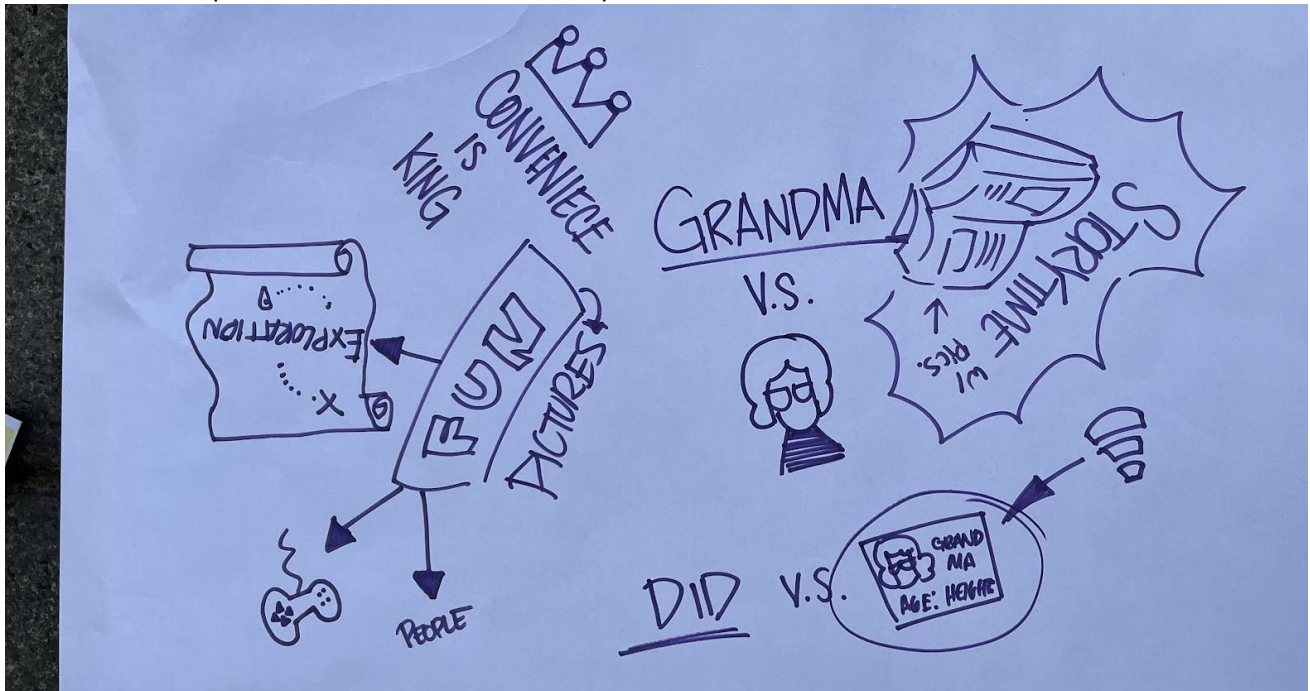 CONVENIECE
IS
KING
EXPLORATION
X
FUN
PICTURES
PEOPLE
GRANDMA
V.S.
STORYTIME
W/
PICS.
DID V.S.
GRAND
MA
AGE: HEIGHT